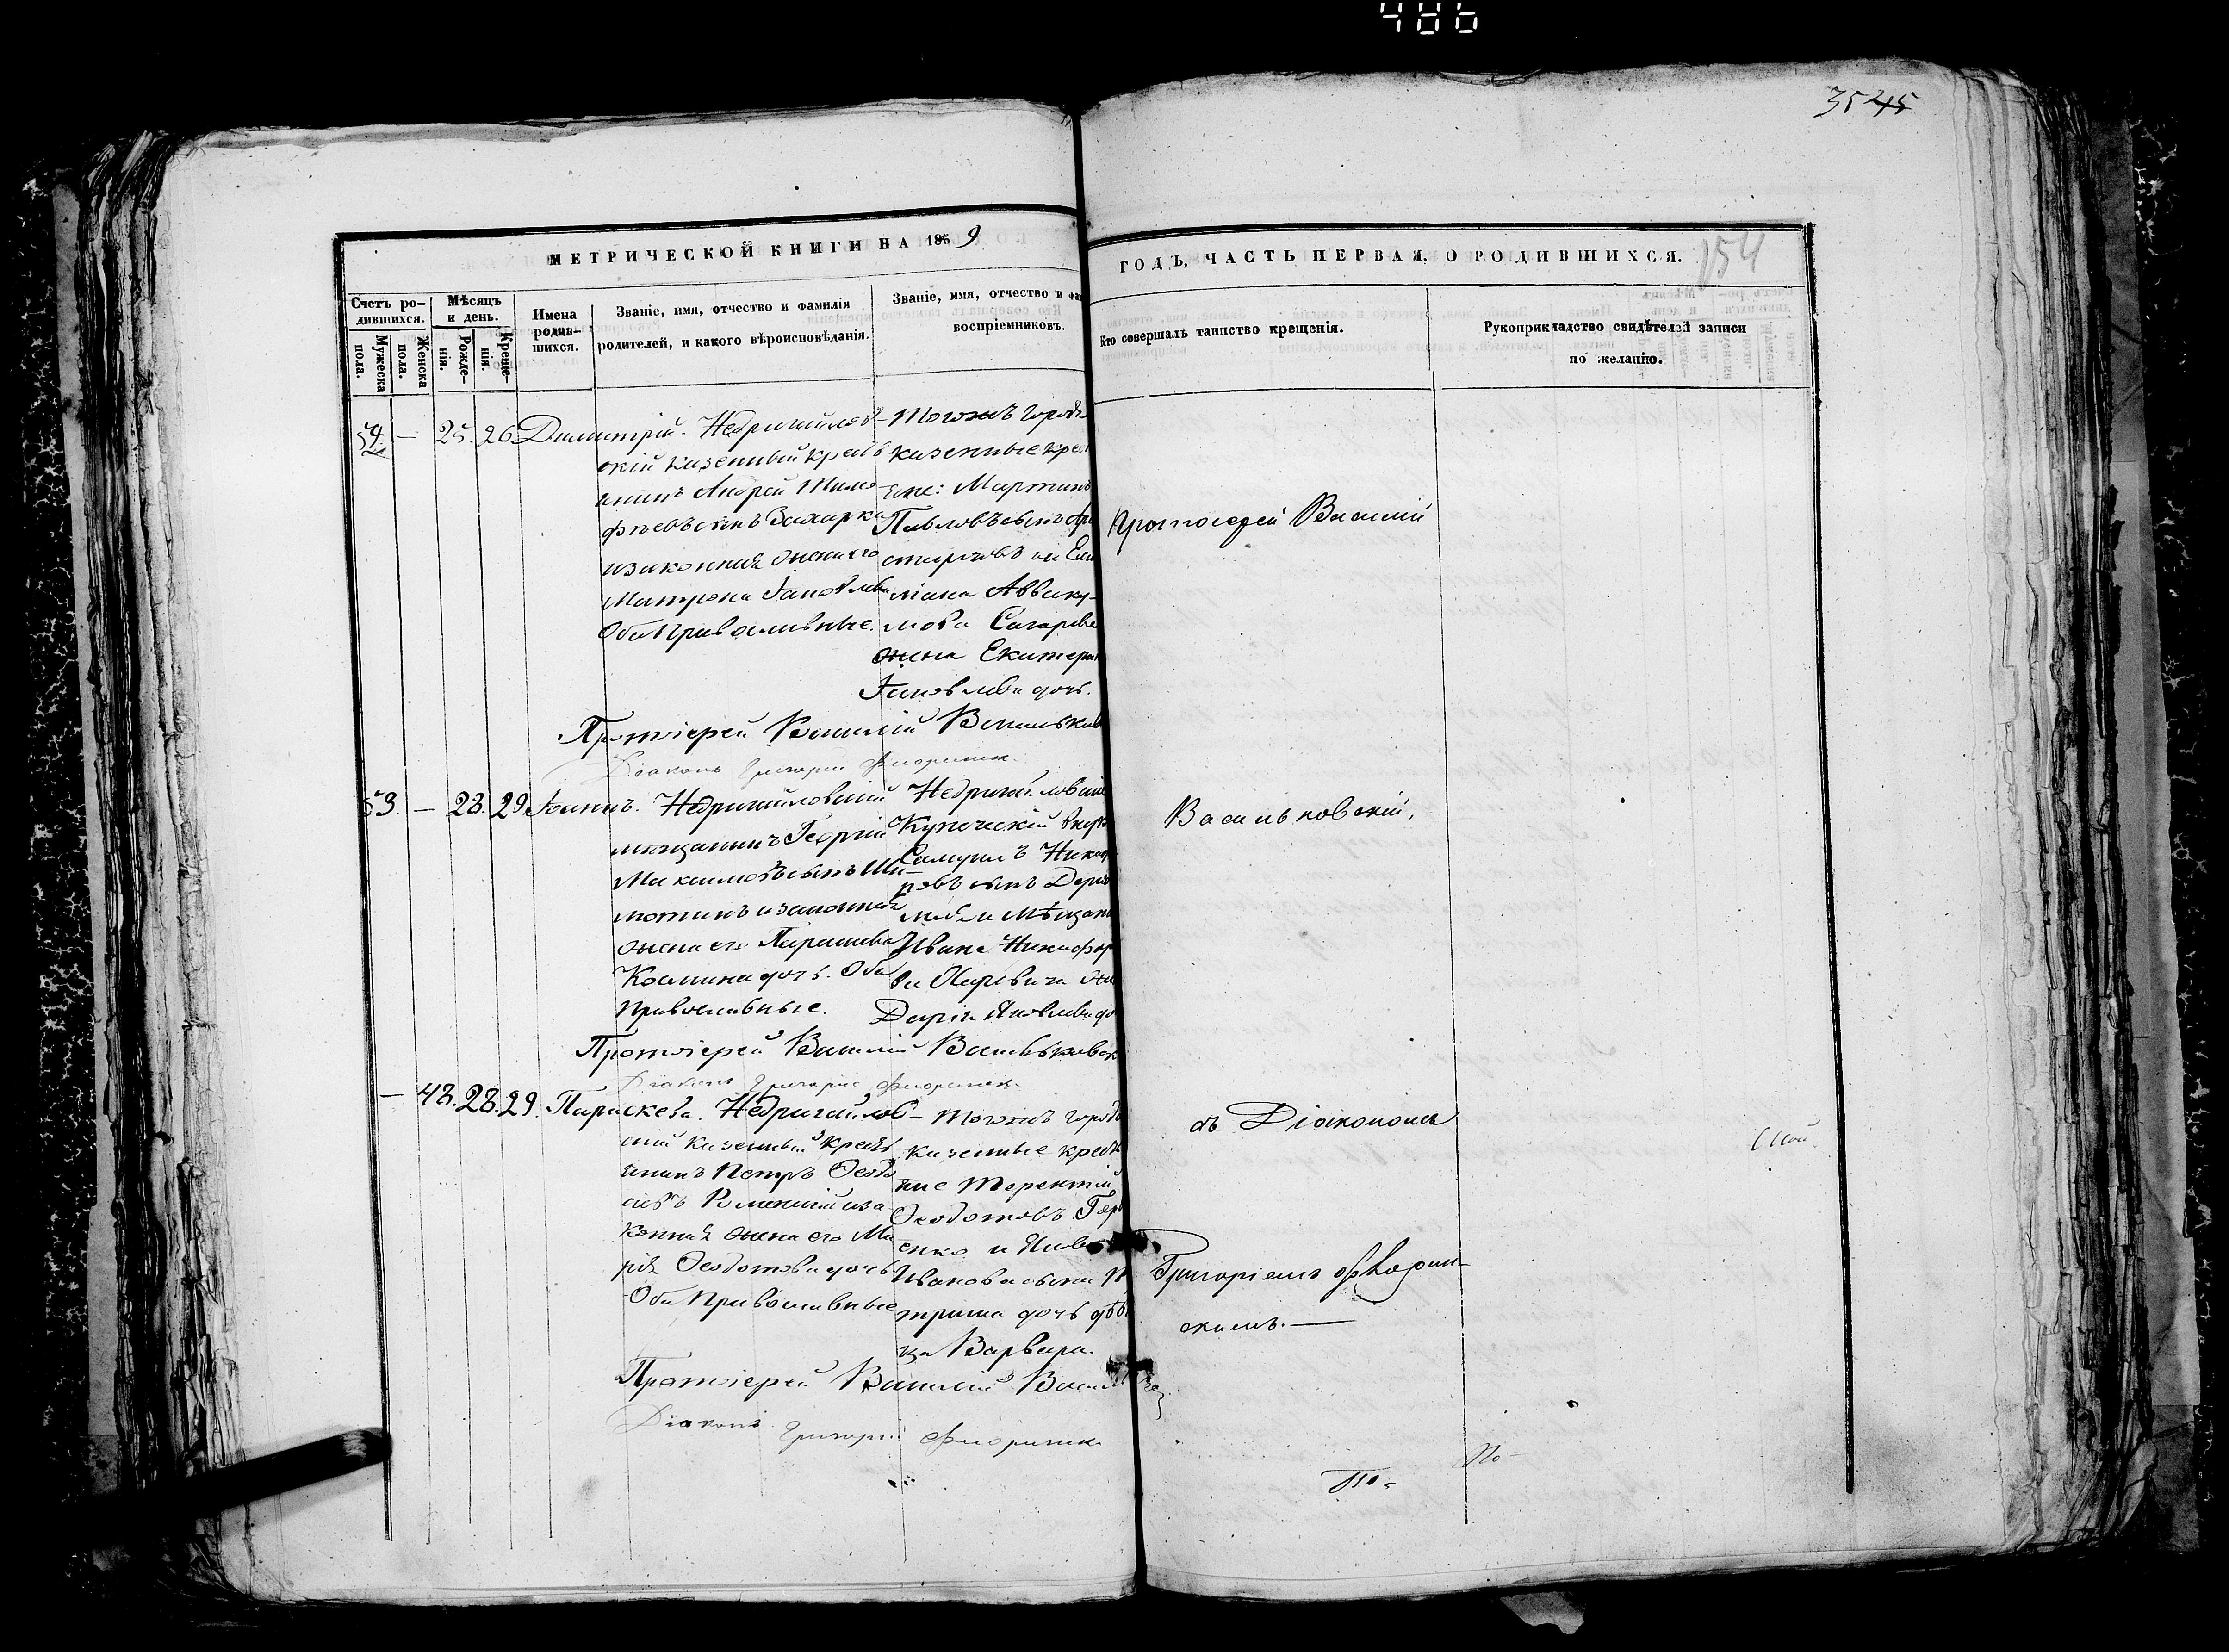 486
3545
МЕТРИЧЕСКОЙ КНИГИ НА 1859
ГОДЪ, ЧАСТЬ ПЕРВАЯ, О РОДИВШИХСЯ.
154
Счетъ ро-
дившихся.
Мужеска
пола.
Женска
пола.
Мѣсяцъ
и день.
Рожде-
нія.
Креще-
нія.
Имена
родив-
шихся.
Званіе, имя, отчество и фамилія
родителей, и какого вѣроисповѣданія.
Званіе, имя, отчество и фа
воспріемниковъ.
Кто совершалъ таинство крещенія.
Рукоприкладство свидѣтелей записи
по желанію.
— 25. 26. Димитрій.
Недригайлов-
скій казенный кресть
янинъ Андрей Тимо
фѣевъ сынъ Захарка
и законная жена его
Матрона Іаковлева
Оба Православные.
Тогожъ города
казенные крес
яне: Мартинъ
Павловъ сынъ
и Еми
ліана Авваку-
мова
жена Екатери
Іаковлева дочь.
Протоіерей Василій Васильков
Діаконъ Григорій Флоринск
53. — 28. 29. Іоаннъ.
Недригайловскій
мѣщанинъ Георгій
Максимовъ сынъ Ши-
мотинъ и законная
жена его Параскева
Космина дочь. Оба
Православные.
Недригайловскій
Купеческій внукъ
Самуилъ Никиф
ровъ сынъ
и Мѣщан
Ивана Никифор
ва жен
Дарія Яковлева до
Протоіерей Василій Васильковск
Діаконъ Григорій Флоринск
— 48. 28. 29. Параскева.
Недригайлов-
скій казенный кресть
янинъ Петръ Ѳеодо
сіевъ Роменскій и за
конная жена его Ма
рія Ѳеодотова дочь
Оба Православные
Тогожъ города
казенные кресть
яне Терентій
Ѳеодотовъ
енко и
Иванова сына
дочь дѣви
ца Варвара.
Протоіерей Василій Васильк
Діаконъ Григорій Флоринск
Протоіерей Василій
Васильковскій,
съ Діакономъ
Григоріемъ Флорин-
скимъ. —
По-
По-